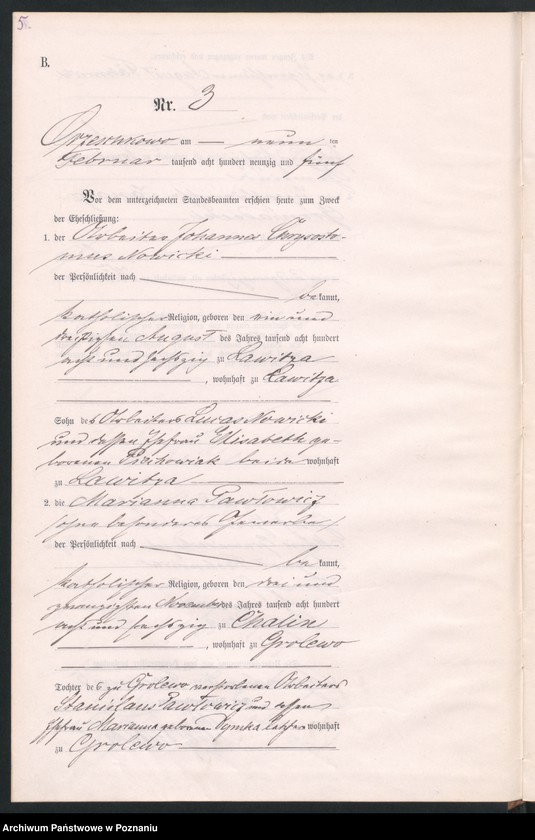 5.
B.
Nr. 3
Orzeschkowo am — neun ten
Februar tausend acht hundert neunzig und fünf
Vor dem unterzeichneten Standesbeamten erschien heute zum Zweck
der Eheschließung:
1. der Arbeiter Johannes Chrysosto-
mus Nowicki
der Persönlichkeit nach
be kannt,
katholischer Religion, geboren den ein und
dreißigsten August des Jahres tausend acht hundert
acht und sechszig zu Lawitza
, wohnhaft zu Lawitza
Sohn des Arbeiters Lucas Nowicki
und dessen Ehefrau Elisabeth ge-
borenen beide wohnhaft
zu Lawitza
2. die Marianna Pawłowicz
ohne besonderes Gewerbe
der Persönlichkeit nach
be kannt,
katholischer Religion, geboren den drei und
zwanzigsten November des Jahres tausend acht hundert
acht und sechszig zu Chalin
, wohnhaft zu Grolewo
Tochter des zu Grolewo verstorbenen Arbeiters
Stanislaus Pawłowicz und dessen
Ehefrau Marianna geborenen Dymka letztere wohnhaft
zu Grolewo
Archiwum Państwowe w Poznaniu